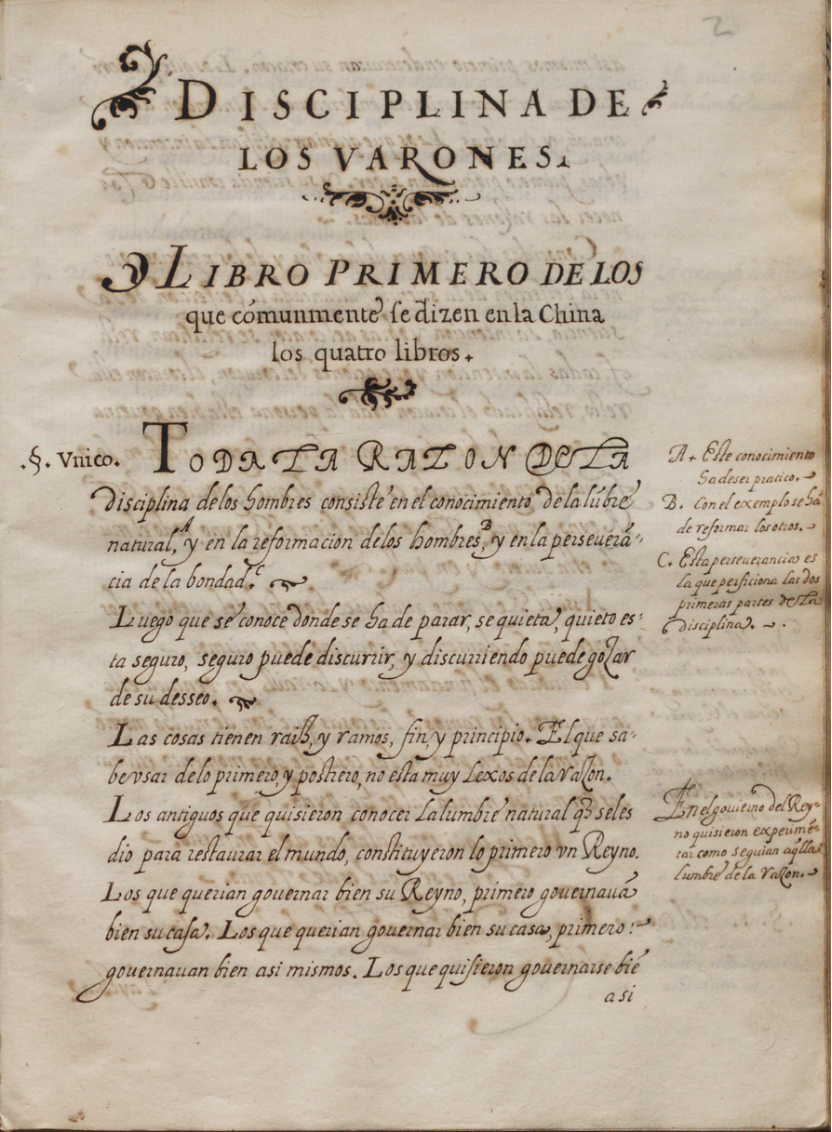 2
DISCIPLINA DE
LOS VARONES.
LIBRO PRIMERO DE LOS
que cómunmente se dizen en la China
los quatro libros.
.§. Vnico. TODA LA RAZON DE LA
disciplina de los hombres consiste en el conocimiento de la lũbre
natural,^A y en la reformacion de los hombres,^B y en la perseuerã-
cia de la bondad.^C
Luego que se conoce donde se ha de parar, se quieta, quieto es-
ta seguro, seguro puede discurrir, y discurriendo puede gozar
de su desseo.
Las cosas tienen raiz, y ramos, fin, y principio. El que sa-
be vsar de lo primero, y postrero, no esta muy lexos de la razon.
Los antiguos que quisieron conocer la lumbre natural q̃ se les
dio para restaurar el mundo, constituyeron lo primero vn Reyno.
Los que querian gouernar bien su Reyno, primero gouernauã
bien su casa. Los que querian gouernar bien su casa, primero
gouernauan bien asi mismos. Los que quisieron gouernarse biẽ
asi
A. Este conocimiento
ha de ser pratico.
B. Con el exemplo se hã
de reformar los otros.
C. Esta perseuerancia es
la que perficiona las dos
primeras partes de la
disciplina.
En el gouierno del Rey-
no quisieron experimẽ-
tar como seguian aq̃lla
lumbre de la razon.